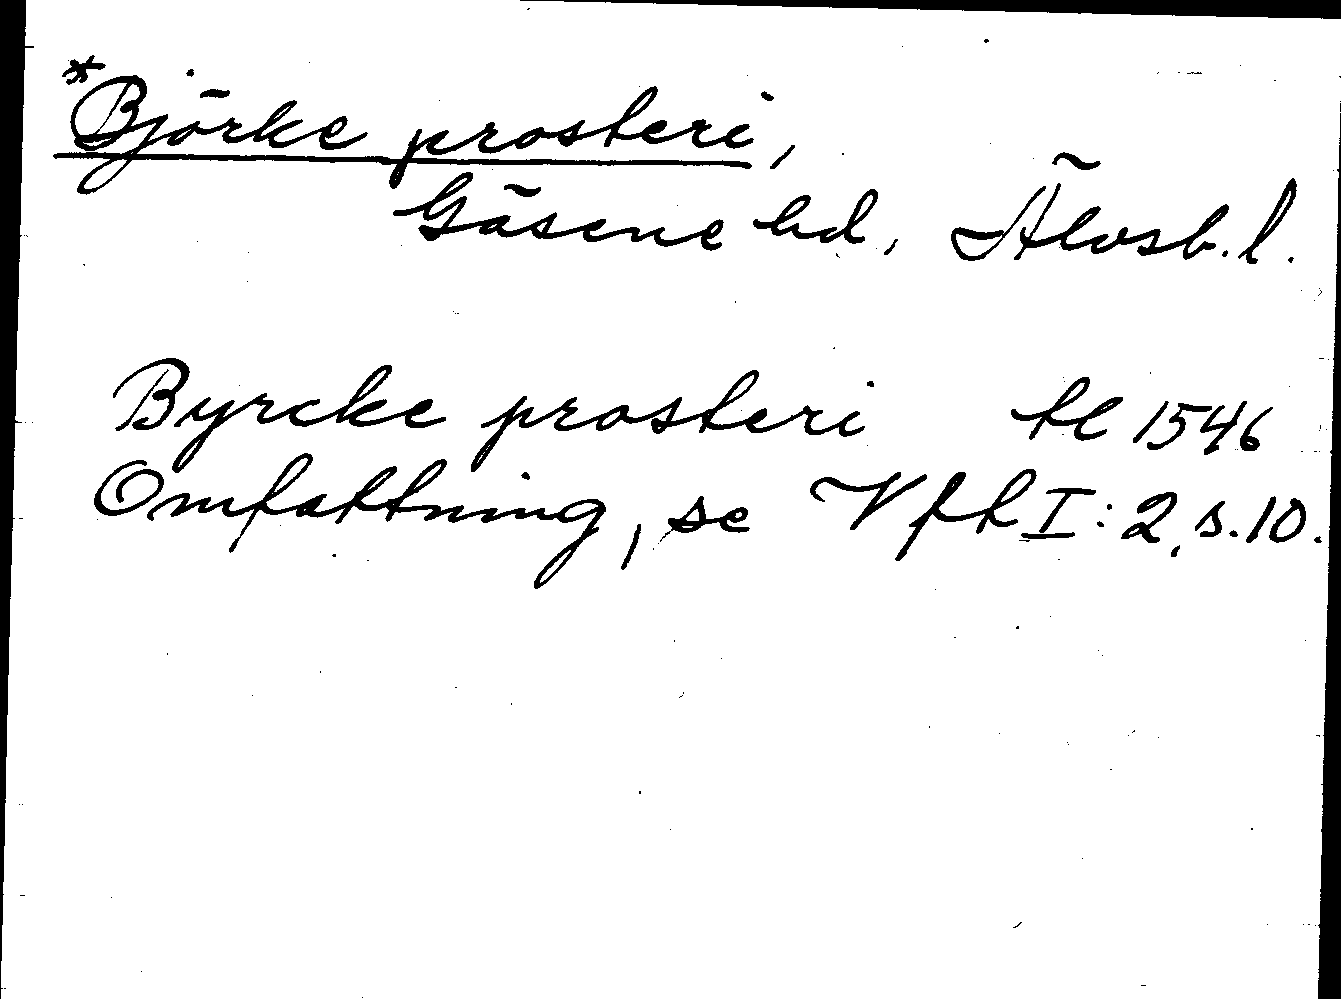 *Björke prosteri,
Gäsene hd, Älvsb. l.
Byrcke prosteri tl 1546
Omfattning, se Vfh I:2, s. 10.